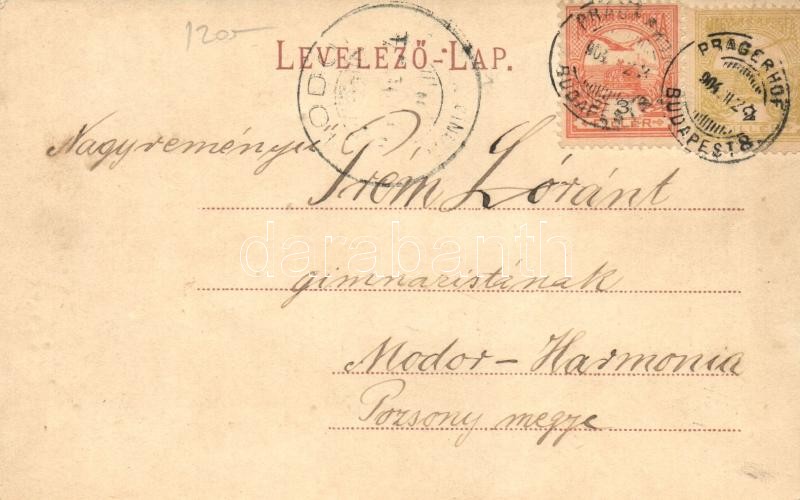 1200
LEVELEZŐ-LAP.
PRAGERHOF
904
BUDAPEST
3
PRAGERHOF
904. II. 24
BUDAPEST 8
MODOR
Nagyreményű
Prém Lóránt
darabanth
gimnazistának
Modor-Harmonia
Pozsony megye